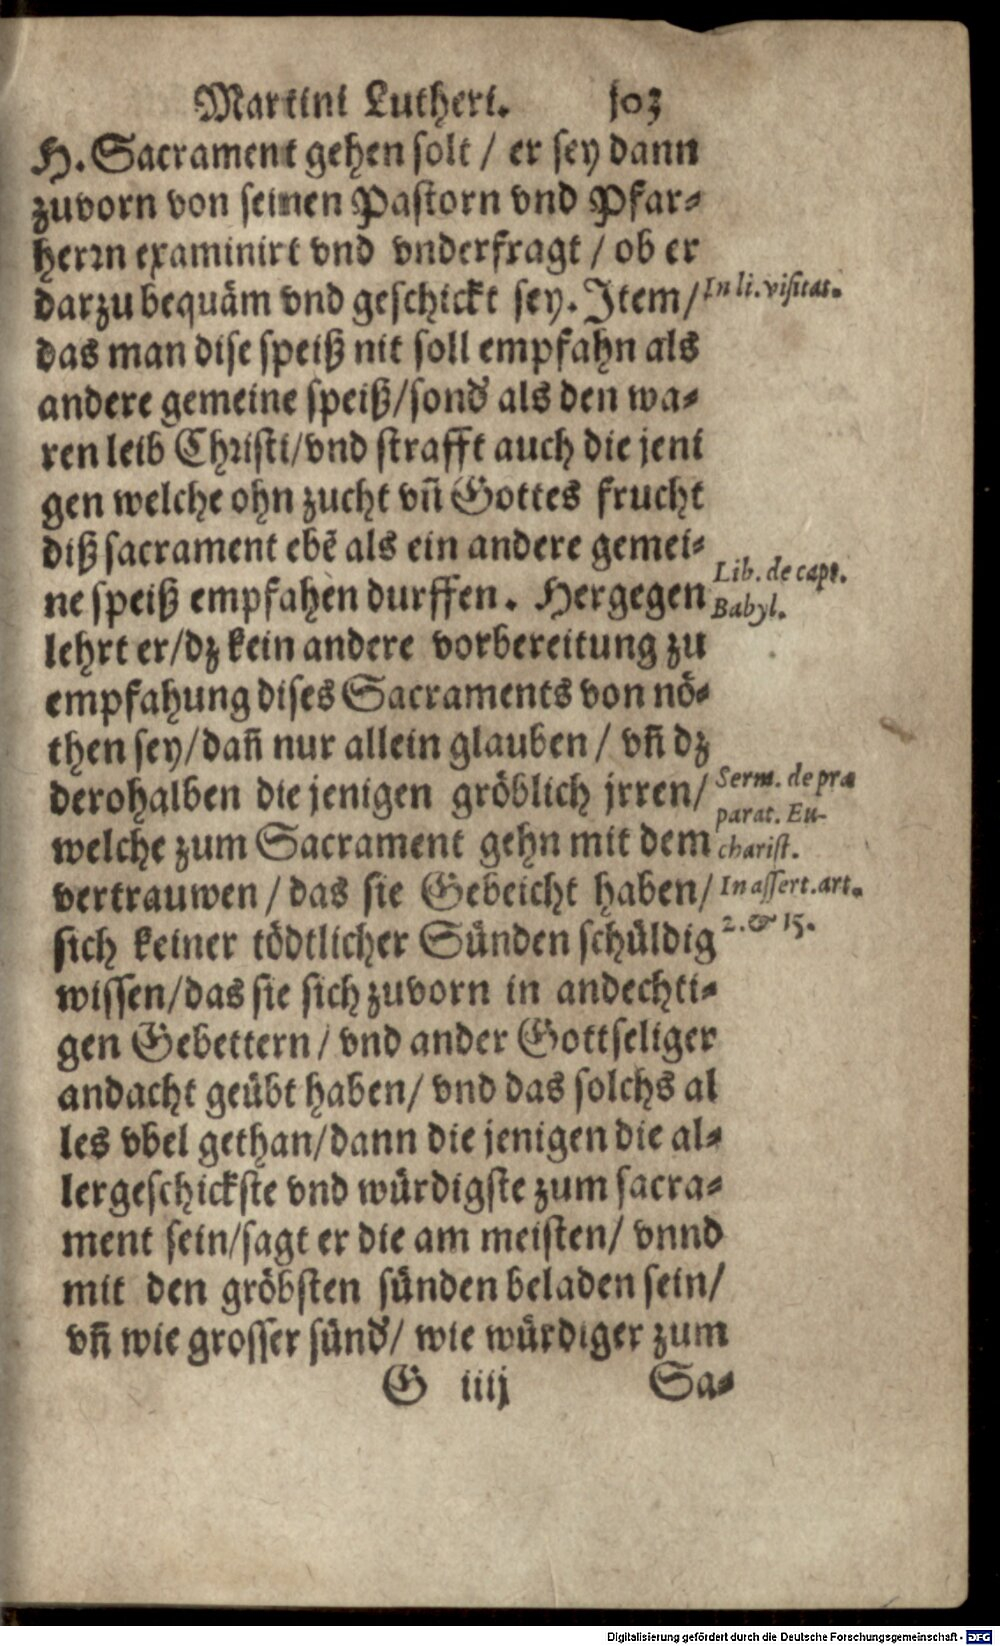 Martini Lutheri. 103
H. Sacrament gehen solt / er sey dann
zuvorn von seinen Pastorn vnd Pfar-
herrn examinirt vnd vnderfragt / ob er
darzu bequäm vnd geschickt sey. Item /
In li. visitat.
das man dise speiß nit soll empfahn als
andere gemeine speiß / sond' als den wa-
ren leib Christi / vnd strafft auch die jeni
gen welche ohn zucht vñ Gottes frucht
diß sacrament ebē als ein andere gemei-
ne speiß empfahen durffen. Hergegen
Lib. de capt.
Babyl.
lehrt er / dz kein andere vorbereitung zu
empfahung dises Sacraments von nö-
then sey / dañ nur allein glauben / vñ dz
derohalben die jenigen gröblich jrren /
Serm. de præ
parat. Eu-
charist.
welche zum Sacrament gehn mit dem
vertrauwen / das sie Gebeicht haben /
In assert. art.
2. & 15.
sich keiner tödtlicher Sünden schüldig
wissen / das sie sich zuvorn in andechti-
gen Gebettern / vnd ander Gottseliger
andacht geübt haben / vnd das solchs al
les vbel gethan / dann die jenigen die al-
lergeschickste vnd würdigste zum sacra-
ment sein / sagt er die am meisten / vnnd
mit den gröbsten sünden beladen sein /
vñ wie grosser sünd' / wie würdiger zum
G iiij Sa-
Digitalisierung gefördert durch die Deutsche Forschungsgemeinschaft - DFG